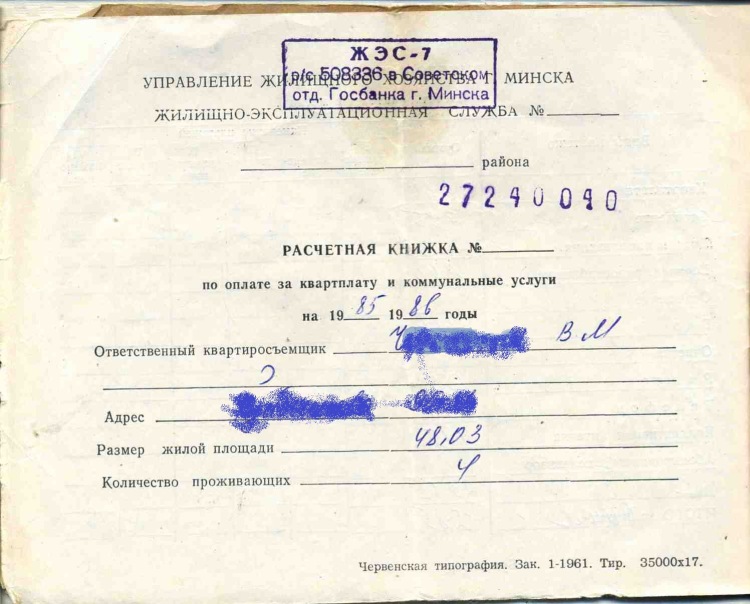 ЖЭС-7
р/с 508336 в Советском
отд. Госбанка г. Минска
УПРАВЛЕНИЕ ЖИЛИЩНОГО ХОЗЯЙСТВА Г. МИНСКА
ЖИЛИЩНО-ЭКСПЛУАТАЦИОННАЯ СЛУЖБА №
района
27240040
РАСЧЕТНАЯ КНИЖКА №
по оплате за квартплату и коммунальные услуги
на 1985 1986 годы
Ответственный квартиросъемщик В М
Адрес
Размер жилой площади 48,03
Количество проживающих 4
Червенская типография. Зак. 1-1961. Тир. 35000х17.